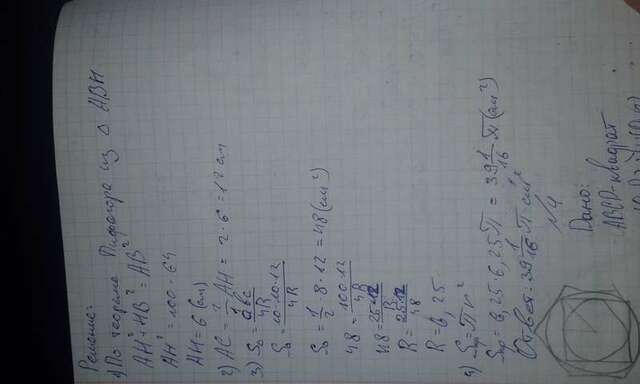 Решение:
1) По теореме Пифагора из △ ABH
AH² + HB² = AB²
AH² = 100 - 64
AH = 6 (см)
2) AC = 2 AH = 2 · 6 = 12 см
3) S₀ = abc / 4R
S₀ = 10·10·12 / 4R
S₀ = 1/2 · 8 · 12 = 48 (см²)
48 = 100·12 / 4R
48 = 25·12 / R
R = 25·12 / 48
R = 6,25
4) Sкр = πr²
Sкр = 6,25·6,25π = 39 1/16 π (см²)
Ответ: 39 1/16 π см²
№4
Дано:
ABCD - квадрат